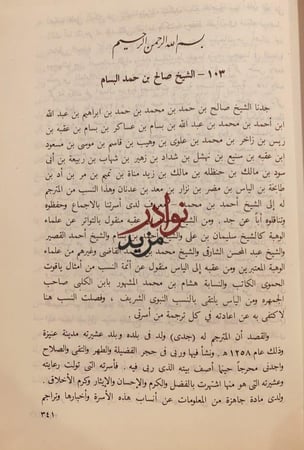 بسم الله الرحمن الرحيم
١٠٣ - الشيخ صالح بن حمد البسام
جدنا الشيخ صالح بن حمد بن محمد بن حمد بن ابراهيم بن عبد الله
ابن أحمد بن محمد بن عبد الله بن بسام بن عساكر بن بسام بن عقبه بن
ريس بن زاخر بن محمد بن علوى بن وهيب بن قاسم بن موسى بن مسعود
ابن عقبه بن سنيع بن نهشل بن شداد بن زهير بن شهاب بن ربيعة بن أبى
سود بن مالك بن حنظله بن مالك بن زيد مناة بن تميم بن مر بن أد بن
طابخة بن الياس بن مضر بن نزار بن معد بن عدنان وهذا النسب من المترجم
لدى أسرتنا بالاجماع وحفظوه
وتناقلوه أباً عن جد. ومن منقول بالتواتر عن علماء
الوهبة كالشيخ سليمان بن على والشيخ أحمد القصير
والشيخ عبد المحسن الشارقى والشيخ محمد القاضى وغيرهم من علماء
الوهبة المعتبرين ومن عقبه إلى الياس منقول عن أئمة النسب من أمثال ياقوت
الحموى الكاتب والنسابة هشام بن محمد المشهور بابن الكلبى صاحب
الجمهره ومن الياس يلتقى بالنسب النبوى الشريف، وفصلت النسب هنا
لاكتفى به عن اعادته في كل ترجمة من أسرتى.
والقصد أن المترجم له (جدى) ولد في بلده وبلد عشيرته مدينة عنيزة
وذلك عام ١٢٥٨ هـ. ونشأ فيها وربى في حجر الفضيلة والطهر والتقى والصلاح
واجدنى محرجاً حينما أصف بيته الذى ربى فيه. فأسرته التى تولت رعايته
وعشيرته التى هو منها اشتهرت بالفضل والكرم والإحسان والإيثار وكرم الأخلاق.
ولدى مادة جاهزة من المعلومات عن أنساب هذه الأسرة وأخبارها وتراجم
٣٤١
نوادر
مزيد